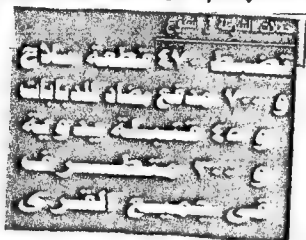 حملات الشرطة في الصعيد
تضبط ٤٧٠٠ قطعة سلاح
و ٧٠٠ مدافع مضاد للدبابات
و ٤٥ قنبلة يدوية
و ٢٠٠ متطرف
فى جميع القرى